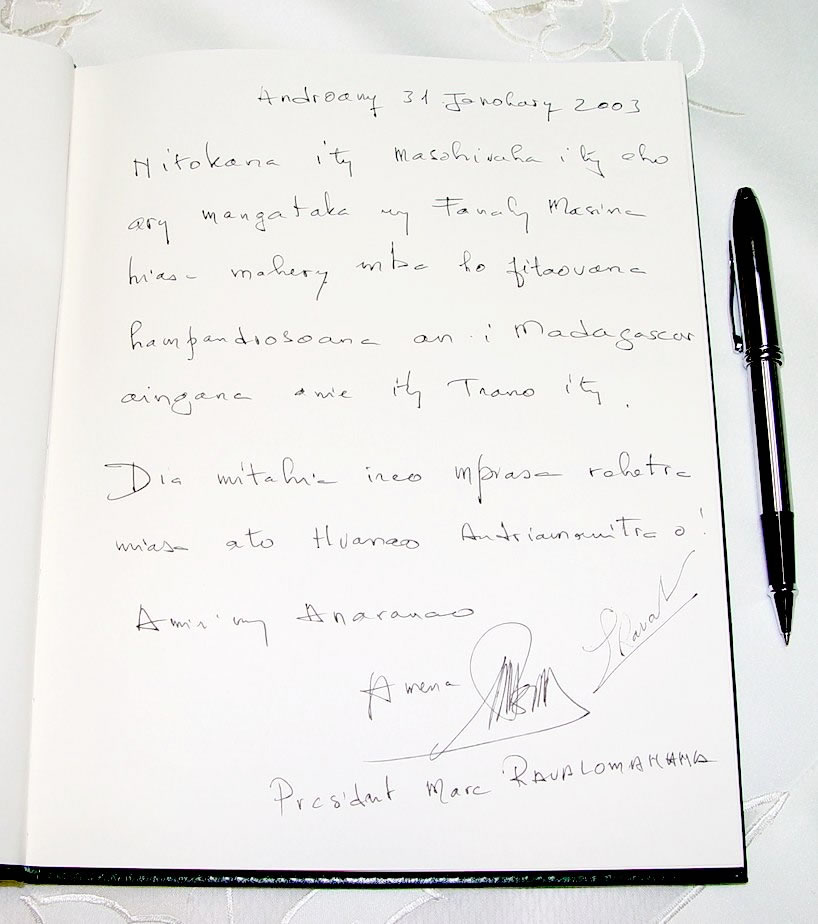 Androany 31 Janohary 2003
Nitokana ity masohivoho ity eho
ary mangataka ny Fanahy Masina
hiasa mahery mba ho fitaovana
hampandrosoana an i Madagascar
aingana anie ity Trano ity.
Dia mitahia ireo mpiasa rehetra
miasa ato Hianao Andriamanitra o!
Amin'ny Anaranao
Amena
Ravalo
President Marc RAVALOMANANA